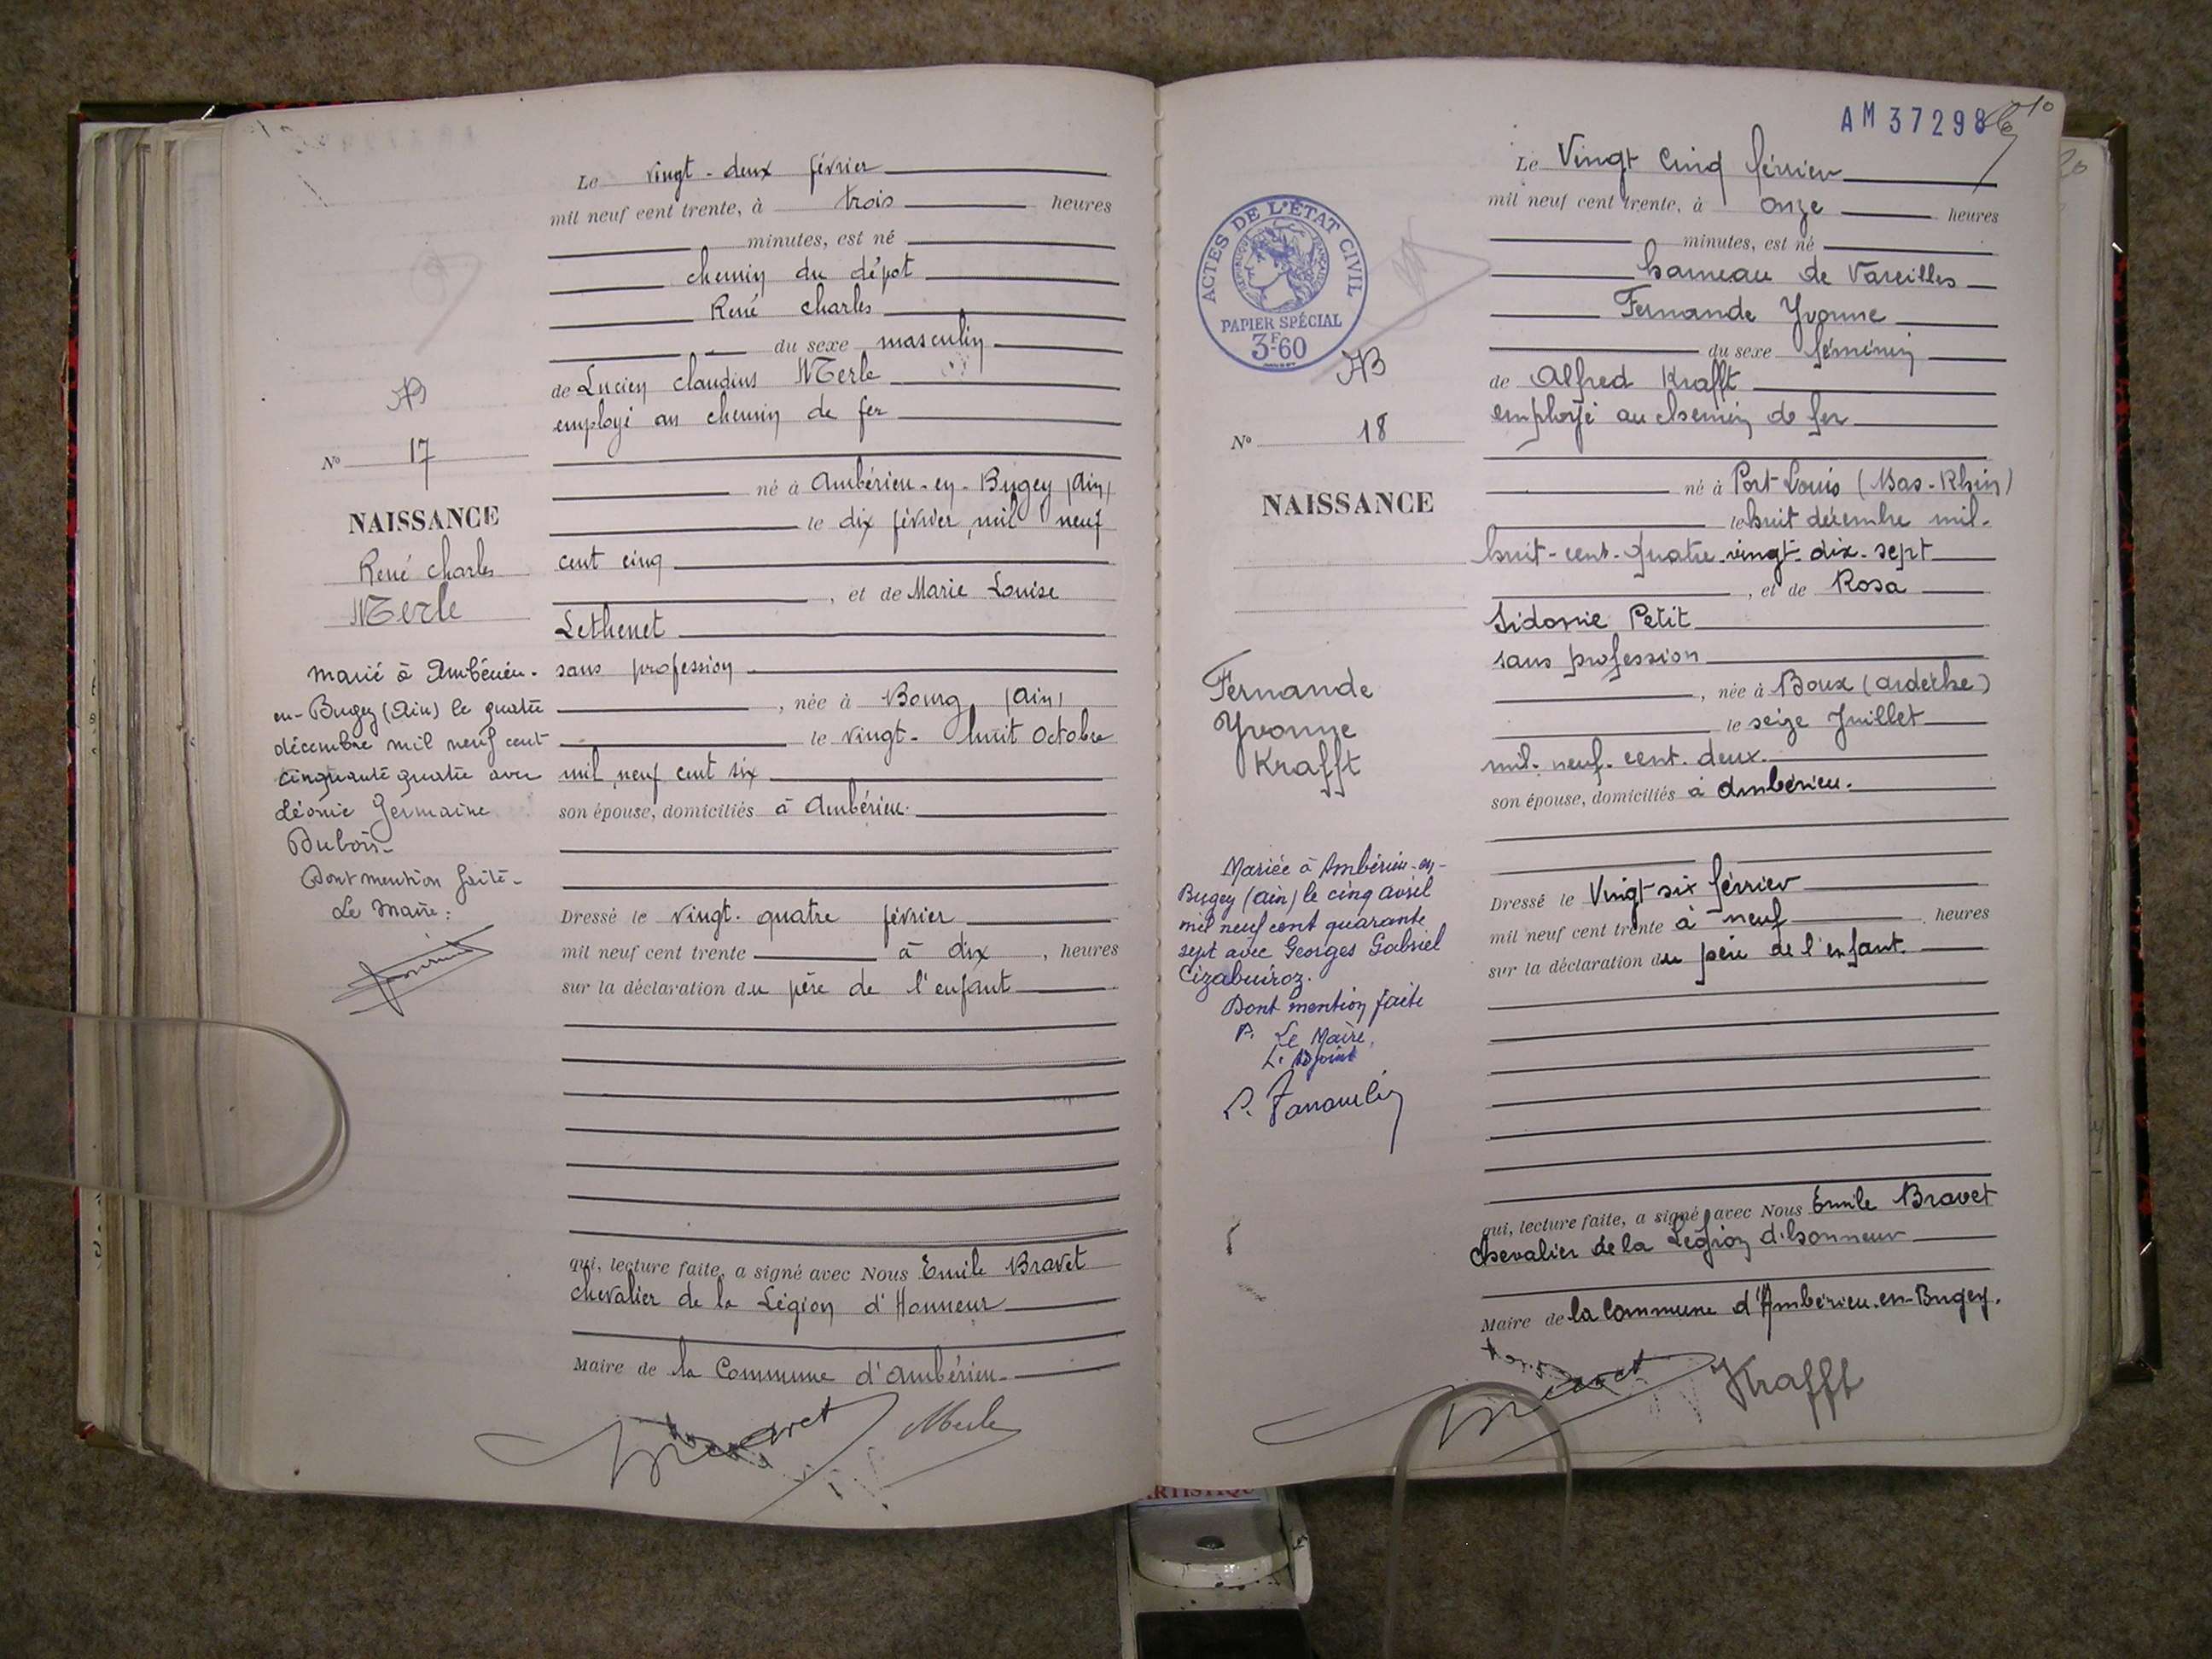 Le vingt-deux février
mil neuf cent trente, à trois heures
minutes, est né
chemin du dépot
René Charles
du sexe masculin
de Lucien Claudius Merle
employé au chemin de fer
né à Ambérieu-en-Bugey (Ain)
le dix février mil neuf
cent cinq
, et de Marie Louise
Lethenet
sans profession
, née à Bourg (Ain)
le vingt-huit Octobre
mil neuf cent six
son épouse, domiciliés à Ambérieu.
Dressé le vingt-quatre février
mil neuf cent trente à dix, heures
sur la déclaration du père de l'enfant
qui, lecture faite, a signé avec Nous Emile Bravet
chevalier de la Légion d'Honneur
Maire de la Commune d'Ambérieu
Bravet Merle
N° 17
NAISSANCE
René Charles
Merle
Marié à Ambérieu-
en-Bugey (Ain) le quatre
décembre mil neuf cent
cinquante quatre avec
Léonie Germaine
Dubois-
Dont mention faite-
Le Maire:
AM 37298
Le Vingt cinq février
mil neuf cent trente, à onze heures
minutes, est né
hameau de Vareilles
Fernande Yvonne
du sexe féminin
de Alfred Krafft
employé au chemin de fer
né à Port-Louis (Bas-Rhin)
le huit décembre mil-
huit-cent-quatre-vingt-dix-sept
, et de Rosa
Sidonie Petit
sans profession
, née à Boux (Ardèche)
le seize Juillet
mil-neuf-cent-deux.
son épouse, domiciliés à Ambérieu.
Dressé le Vingt-six février
mil neuf cent trente à neuf, heures
sur la déclaration du père de l'enfant.
qui, lecture faite, a signé avec Nous Emile Bravet
chevalier de la Légion d'honneur
Maire de la Commune d'Ambérieu-en-Bugey.
Bravet Krafft
ACTES DE L'ÉTAT CIVIL
RÉPUBLIQUE FRANÇAISE
PAPIER SPÉCIAL
3F60
N° 18
NAISSANCE
Fernande
Yvonne
Krafft
Mariée à Ambérieu-en-
Bugey (Ain) le cinq avril
mil neuf cent quarante
sept avec Georges Gabriel
Cizabuiroz.
Dont mention faite
P. Le Maire,
L'Adjoint
ARTISTIQU